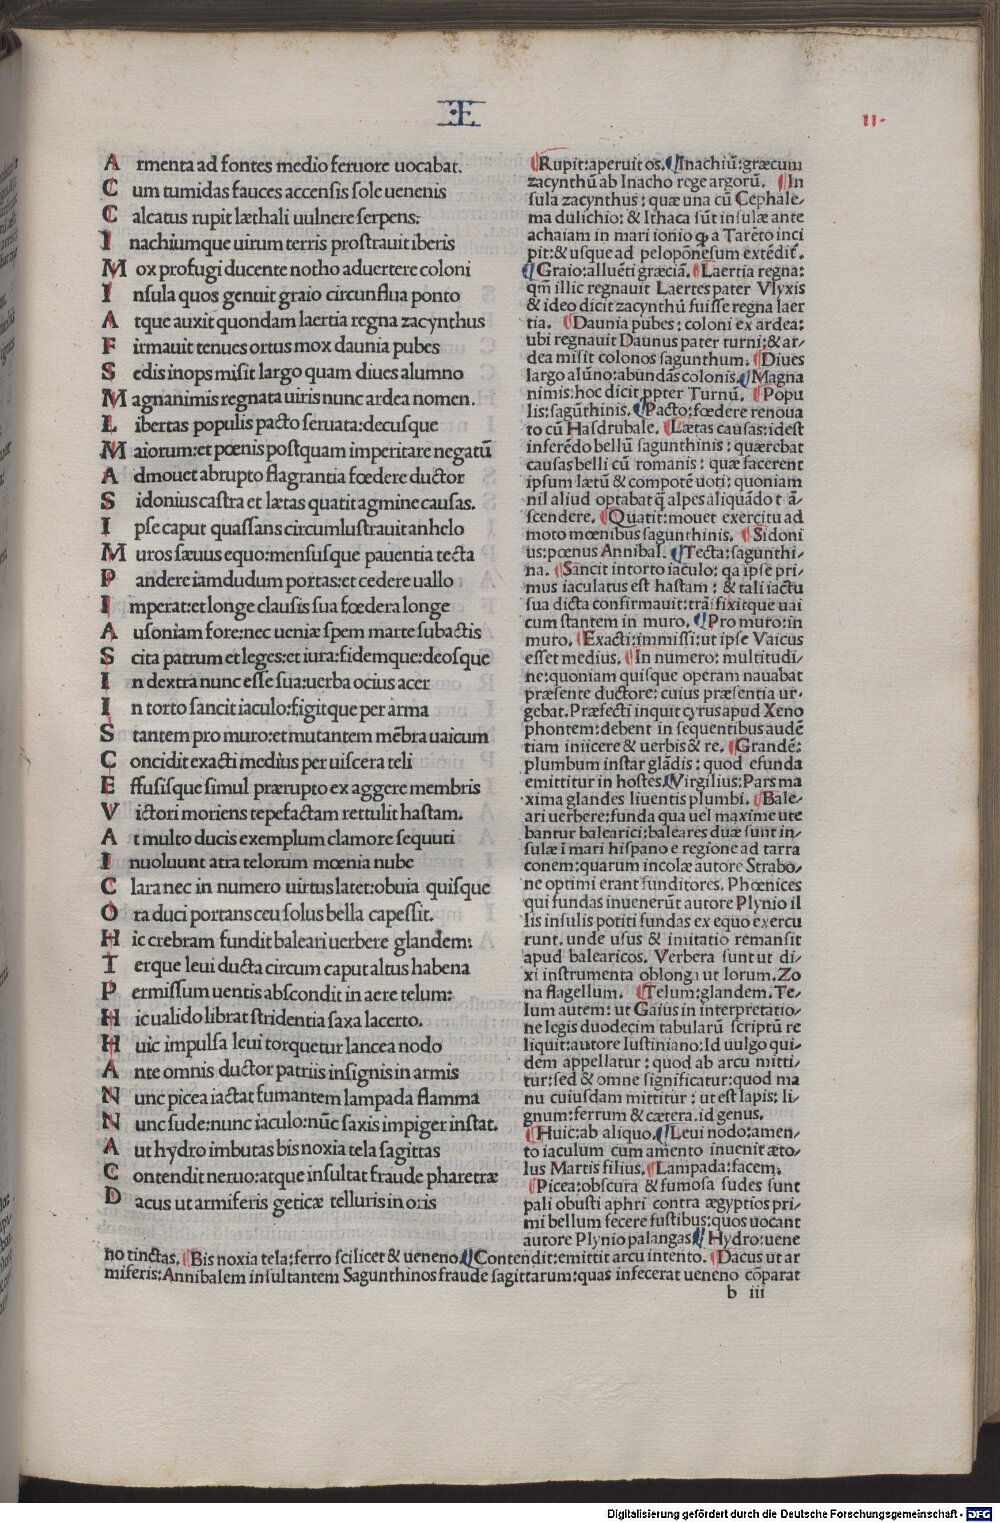 ·I·
11·
Armenta ad fontes medio feruore uocabat.
Cum tumidas fauces accensis sole uenenis
Calcatus rupit læthali uulnere serpens:
Inachiumque uirum terris prostrauit iberis
Mox profugi ducente notho aduertere coloni
Insula quos genuit graio circunflua ponto
Atque auxit quondam laertia regna zacynthus
Firmauit tenues ortus mox daunia pubes
Sedis inops misit largo quam diues alumno
Magnanimis regnata uiris nunc ardea nomen.
Libertas populis pacto seruata: decusque
Maiorum: et pœnis postquam imperitare negatū
Admouet abrupto flagrantia fœdere ductor
Sidonius castra et lætas quatit agmine causas.
Ipse caput quassans circumlustrauit anhelo
Muros sæuus equo: mensusque pauentia tecta
Pandere iamdudum portas: et cedere uallo
Imperat: et longe clausis sua fœdera longe
Ausoniam fore: nec ueniæ spem marte subactis
Scita patrum et leges: et iura: fidemque: deosque
In dextra nunc esse sua: uerba ocius acer
In torto sancit iaculo: figitque per arma
Stantem pro muro: et mutantem mēbra uaicum
Concidit exacti medius per uiscera teli
Effusisque simul prærupto ex aggere membris
Victori moriens tepefactam rettulit hastam.
At multo ducis exemplum clamore sequuti
Inuoluunt atra telorum mœnia nube
Clara nec in numero uirtus latet: obuia quisque
Ora duci portans ceu solus bella capessit.
Hic crebram fundit baleari uerbere glandem:
Terque leui ducta circum caput altus habena
Permissum uentis abscondit in aere telum:
Hic ualido librat stridentia saxa lacerto.
Huic impulsa leui torquetur lancea nodo
Ante omnis ductor patriis insignis in armis
Nunc picea iactat fumantem lampada flamma
Nunc sude: nunc iaculo: nūc saxis impiger instat.
Aut hydro imbutas bis noxia tela sagittas
Contendit neruo: atque insultat fraude pharetræ
Dacus ut armiferis geticæ telluris in oris
¶Rupit: aperuit os. ¶Inachiū: græcum
zacynthū ab Inacho rege argorū. ¶In
sula zacynthus: quæ una cū Cephale-
ma dulichio: & Ithaca sūt insulæ ante
achaiam in mari ionio ꝙ a Tarēto inci
pit: & usque ad peloponesum extēdit̄.
¶Graio: alluēti græciā. ¶Laertia regna:
qm̄ illic regnauit Laertes pater Vlyxis
& ideo dicit zacynthū fuisse regna laer
tia. ¶Daunia pubes: coloni ex ardea:
ubi regnauit Daunus pater turni: & ar-
dea misit colonos saguntum. ¶Diues
largo alūno: abundās colonis. ¶Magna
nimis: hoc dicit ꝓpter Turnū. ¶Popu
lis: sagūthinis. ¶Pacto: fœdere renoua
to cū Hasdrubale. ¶Lætas causas: idest
inferēdo bellū sagunthinis: quærebat
causas belli cū romanis: quæ facerent
ipsum lætū & compotē uoti: quoniam
nil aliud optabat q̄ alpes aliquādo t ā-
scendere. ¶Quatit: mouet exercitu ad
moto mœnibus sagunthinis. ¶Sidoni
us: pœnus Annibal. ¶Tecta: sagunthi-
na. ¶Sancit intorto iaculo: qa ipse pri-
mus iaculatus est hastam: & tali iactu
sua dicta confirmauit: trāsfixitque uai
cum stantem in muro. ¶Pro muro: in
muro. ¶Exacti: immissi: ut ipse Vaicus
esset medius. ¶In numero: multitudi-
ne: quoniam quisque operam nauabat
præsente ductore: cuius præsentia ur-
gebat. Præfecti inquit cyrus apud Xeno
phontem: debent in sequentibus audē
tiam iniicere & uerbis & re. ¶Grandē:
plumbum instar glādis: quod efunda
emittitur in hostes. ¶Virgilius: Pars ma
xima glandes liuentis plumbi. ¶Bale-
ari uerbere: funda qua uel maxime ute
bantur balearici: baleares duæ sunt in-
sulæ ī mari hispano e regione ad tarra
conem: quarum incolæ autore Strabo-
ne optimi erant funditores. Phœnices
qui fundas inuenerūt autore Plynio il
lis insulis potiti fundas ex equo exercu
runt. unde usus & imitatio remansit
apud balearicos. Verbera sunt ut di-
xi instrumenta oblonga ut lorum. Zo
na flagellum. ¶Telum: glandem. Te-
lum autem: ut Gaius in interpretatio-
ne legis duodecim tabularū scriptū re
liquit: autore Iustiniano: Id uulgo qui-
dem appellatur: quod ab arcu mitti-
tur: sed & omne significatur: quod ma
nu cuiusdam mittitur: ut est lapis: li-
gnum: ferrum & cætera. id genus.
¶Huic: ab aliquo. ¶Leui nodo: amen-
to iaculum cum amento inuenit æto-
lus Martis filius. ¶Lampada: facem.
¶Picea: obscura & fumosa sudes sunt
pali obusti aphri contra ægyptios pri-
mi bellum fecere fustibus: quos uocant
autore Plynio palangas. ¶Hydro: uene
no tinctas. ¶Bis noxia tela: ferro scilicet & ueneno. ¶Contendit: emittit arcu intento. ¶Dacus ut ar
miferis: Annibalem insultantem Sagunthinos fraude sagittarum: quas infecerat ueneno cōparat
b iii
Digitalisierung gefördert durch die Deutsche Forschungsgemeinschaft - DFG